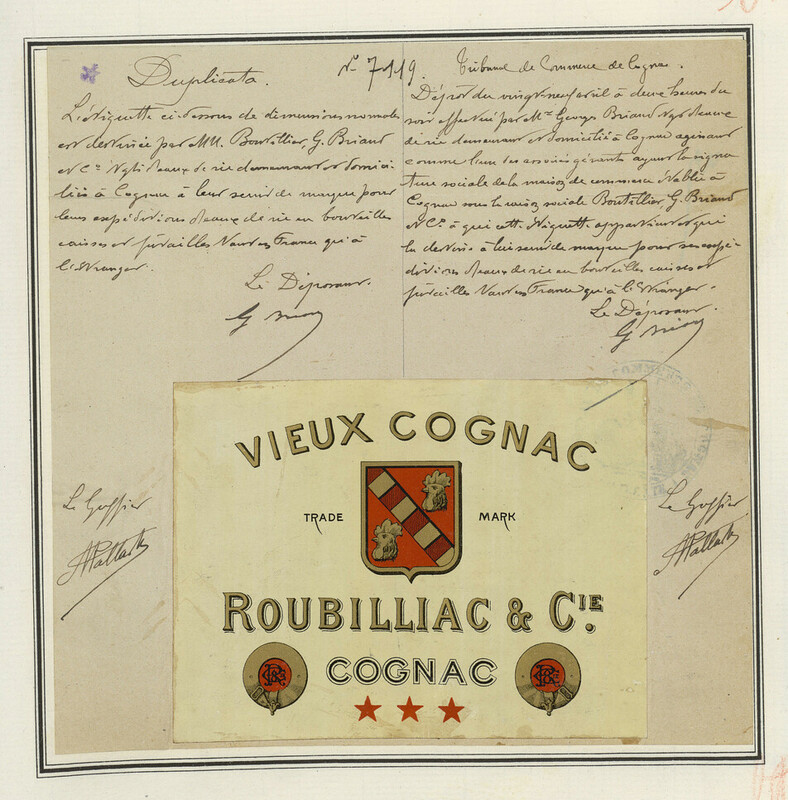 Duplicata.
L'étiquette ci-dessous de dimensions normales
est destinée par MM. Boutillier, G. Briand
et Cie Négts d'eaux de vie demeurant et domici-
liés à Cognac à leur servir de marque pour
leurs expéditions d'eaux de vie en bouteilles
caisses et futailles tant en France qu'à
l'étranger.
Le Déposant.
G Briand
No 7119.
Tribunal de Commerce de Cognac.
Dépôt du vingt neuf avril à deux heures du
soir effectué par Mr Georges Briand Négt d'eaux
de vie demeurant et domicilié à Cognac agissant
comme l'un des associés gérants ayant la signa-
ture sociale de la maison de commerce établie à
Cognac sous la raison sociale Boutillier, G. Briand
et Cie à qui cette étiquette appartient et qui
la destine à lui servir de marque pour ses expé-
ditions d'eaux de vie en bouteilles caisses et
futailles tant en France qu'à l'étranger.
Le Déposant.
G Briand
VIEUX COGNAC
TRADE MARK
ROUBILLIAC & CIE.
COGNAC
Le Greffier
Le Greffier